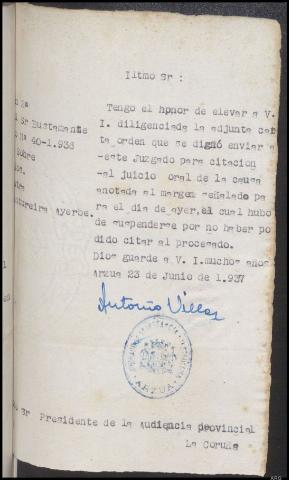 Iltmo Sr :
Tengo el honor de elevar a V.
I. diligenciada la adjunta car
ta orden que se dignó enviar a
-este Juzgado para citacion
-al juicio oral de la causa
anotada al margem señalado pa
ra el dia de ayer,el cual hubo
de suspenderse por no haber po
dido citar al procesado.
Dios guarde a V. I.muchos años
Arzua 23 de Junio de 1.937
Sr Bustamante
Nº 40-1.936
Sobre
Ayerbe.
Antonio
ARZUA
Sr Presidente de la Audiencia provincial
La Coruña